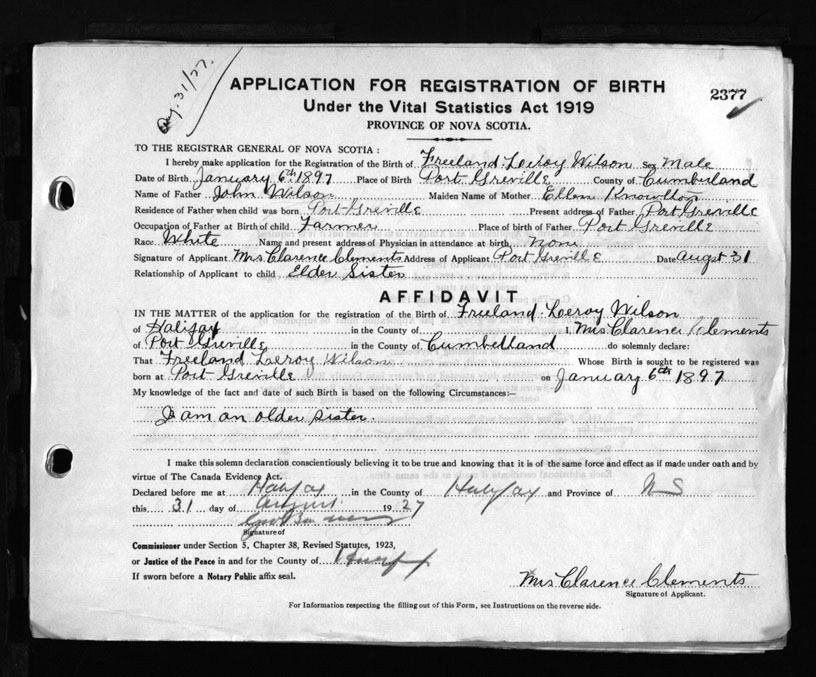 Aug. 31/27.
APPLICATION FOR REGISTRATION OF BIRTH
2377
Under the Vital Statistics Act 1919
PROVINCE OF NOVA SCOTIA.
TO THE REGISTRAR GENERAL OF NOVA SCOTIA :
I hereby make application for the Registration of the Birth of Freeland Leeroy Wilson Sex Male
Date of Birth January 6th 1897 Place of Birth Port Greville County of Cumberland
Name of Father John Wilson Maiden Name of Mother Ellen Knowlton
Residence of Father when child was born Port Greville Present address of Father Port Greville
Occupation of Father at Birth of child Farmer Place of birth of Father Port Greville
Race White Name and present address of Physician in attendance at birth none
Signature of Applicant Mrs Clarence Clements Address of Applicant Port Greville Date augst 31
Relationship of Applicant to child Elder Sister
AFFIDAVIT
IN THE MATTER of the application for the registration of the Birth of Freeland Leeroy Wilson
of Halifax in the County of I, Mrs Clarence Clements
of Port Greville in the County of Cumbelland do solemnly declare:
That Freeland Leeroy Wilson Whose Birth is sought to be registered was
born at Port Greville on January 6th 1897
My knowledge of the fact and date of such Birth is based on the following Circumstances:—
I am an older sister.
I make this solemn declaration conscientiously believing it to be true and knowing that it is of the same force and effect as if made under oath and by
virtue of The Canada Evidence Act.
Declared before me at Halifax in the County of Halifax and Province of NS
this 31 day of August 1927
Signature of
Commissioner under Section 5, Chapter 38, Revised Statutes, 1923,
or Justice of the Peace in and for the County of Halifax
If sworn before a Notary Public affix seal.
Mrs Clarence Clements
Signature of Applicant.
For Information respecting the filling out of this Form, see Instructions on the reverse side.